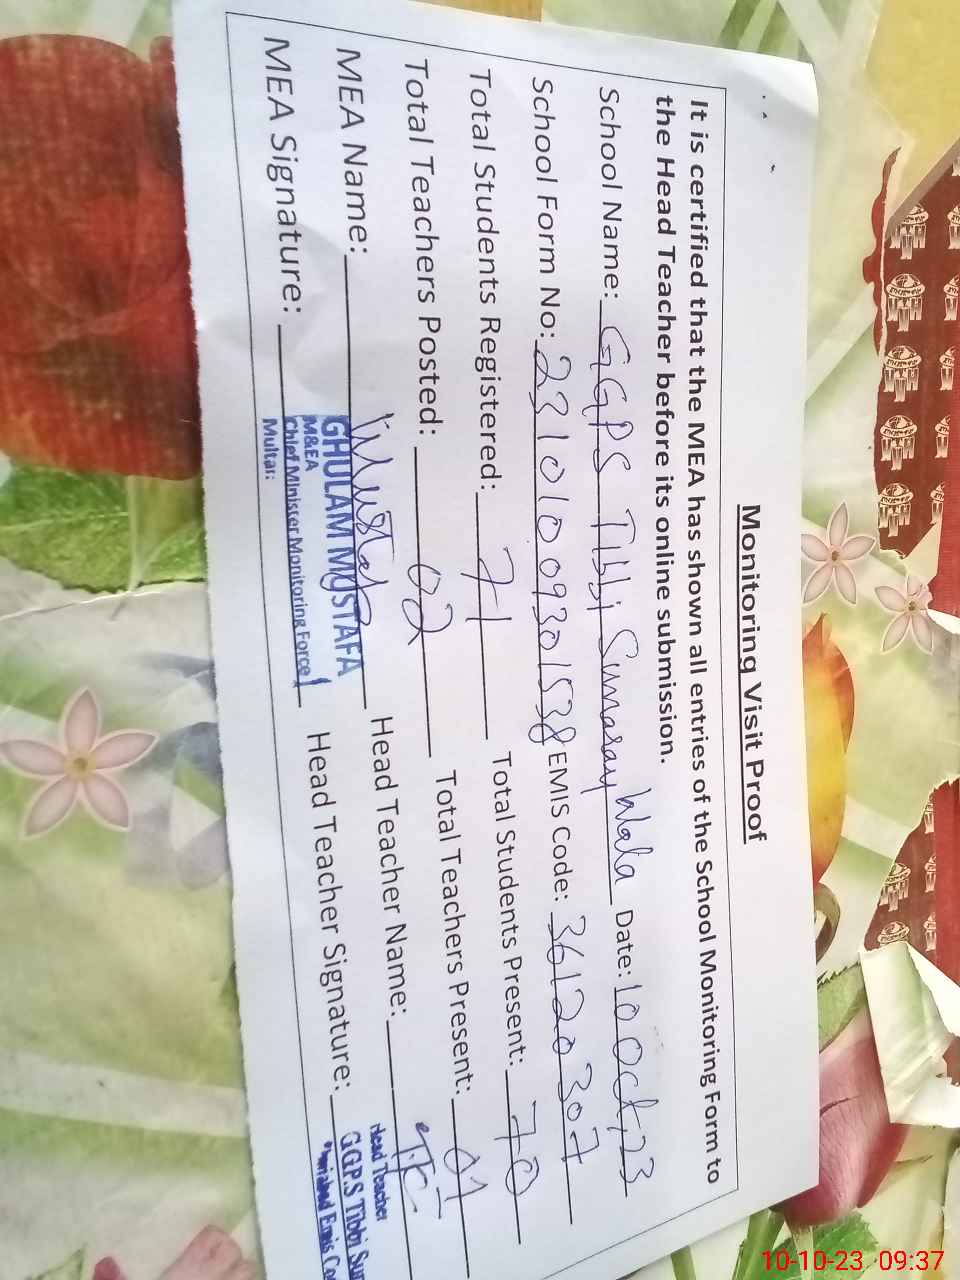 Monitoring Visit Proof
It is certified that the MEA has shown all entries of the School Monitoring Form to
the Head Teacher before its online submission.
School Name: GGPS Tibbi Sumaray Wala Date: 10 Oct, 23
School Form No: 23101009301538 EMIS Code: 36120307
Total Students Registered: 71 Total Students Present: 70
Total Teachers Posted: 02 Total Teachers Present: 01
MEA Name: Head Teacher Name:
GHULAM MUSTAFA
M&EA
MEA Signature: Head Teacher Signature:
Chief Minister Monitoring Force
Multan
Head Teacher
GGP.S Tibbi Sum
Emis Co
10-10-23 09:37